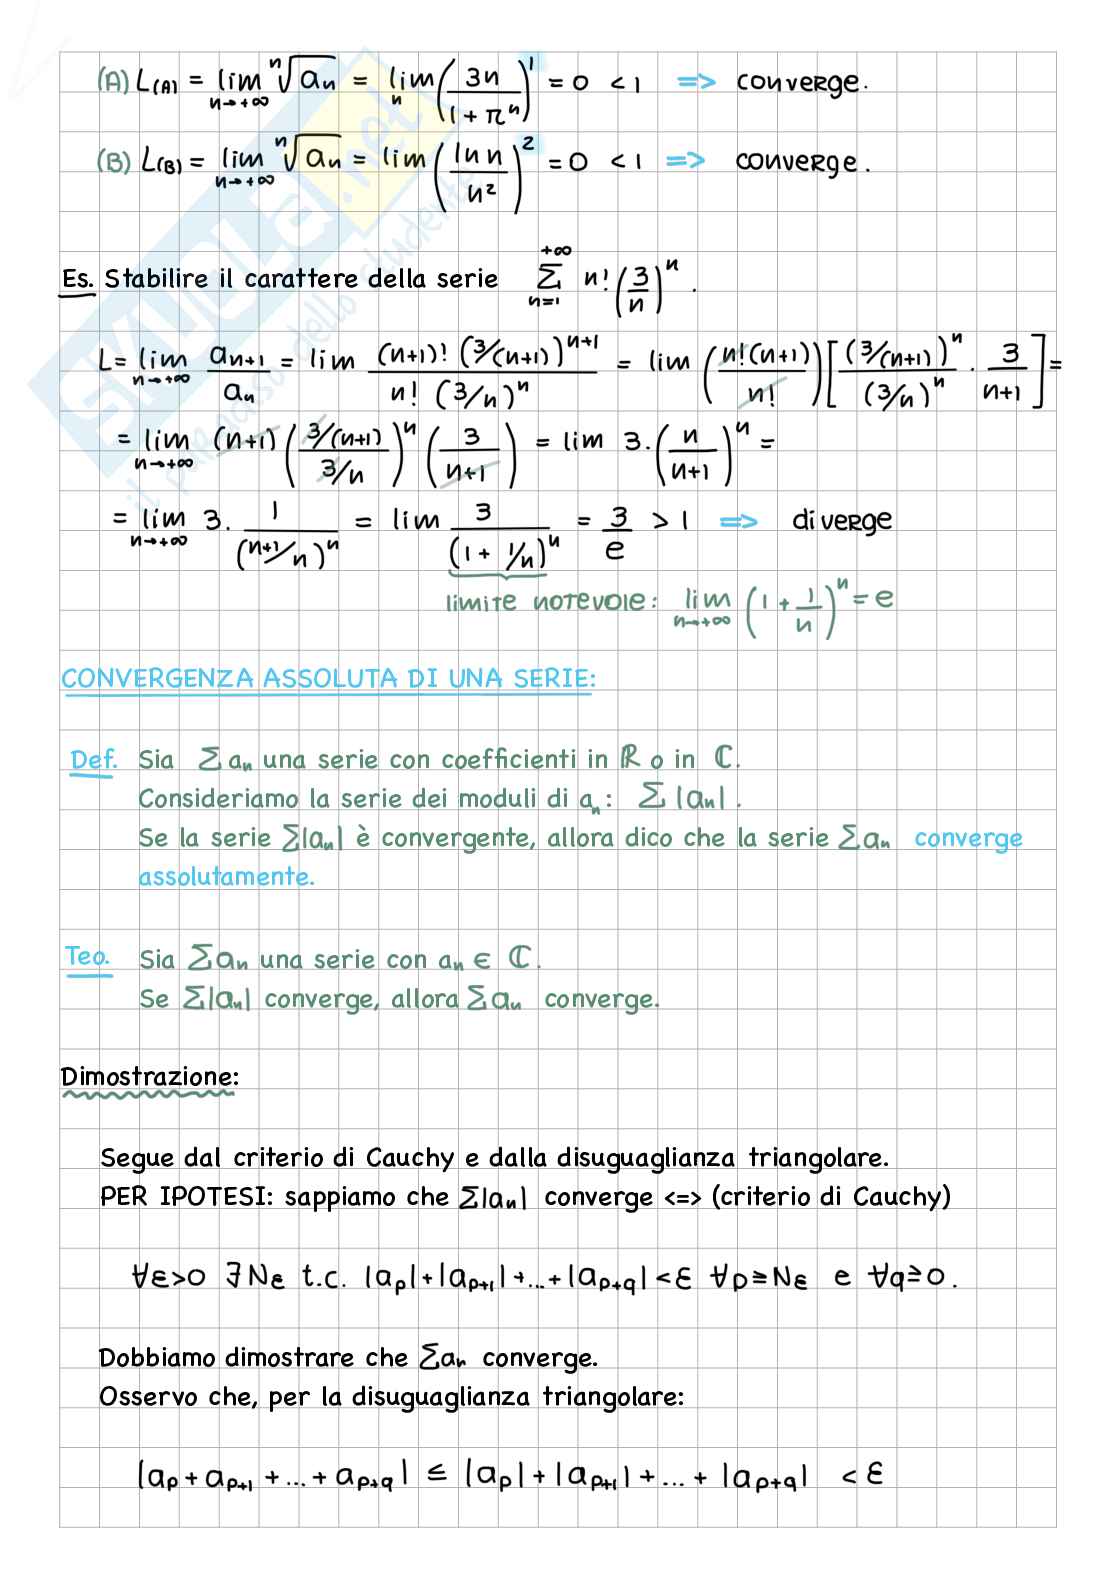 (A) L(A) = lim n→+∞ ⁿ√an = lim n (3n / 1 + πⁿ)¹ = 0 < 1 => converge.
(B) L(B) = lim n→+∞ ⁿ√an = lim (ln n / n²)² = 0 < 1 => converge.
Es. Stabilire il carattere della serie Σ n=1 +∞ n! (3/n)ⁿ.
L = lim n→+∞ an+1 / an = lim (n+1)! (3/(n+1))ⁿ⁺¹ / n! (3/n)ⁿ = lim (n!(n+1) / n!) [(3/(n+1))ⁿ / (3/n)ⁿ · 3 / n+1] =
= lim n→+∞ (n+1) (3/(n+1) / 3/n)ⁿ (3 / n+1) = lim 3·(n / n+1)ⁿ =
= lim n→+∞ 3· 1 / (n+1/n)ⁿ = lim 3 / (1 + 1/n)ⁿ = 3/e > 1 => diverge
limite notevole: lim n→+∞ (1 + 1/n)ⁿ = e
CONVERGENZA ASSOLUTA DI UNA SERIE:
Def. Sia Σ an una serie con coefficienti in ℝ o in ℂ.
Consideriamo la serie dei moduli di an: Σ |an|.
Se la serie Σ|an| è convergente, allora dico che la serie Σ an converge
assolutamente.
Teo. Sia Σ an una serie con an ∈ ℂ.
Se Σ|an| converge, allora Σ an converge.
Dimostrazione:
Segue dal criterio di Cauchy e dalla disuguaglianza triangolare.
PER IPOTESI: sappiamo che Σ|an| converge <=> (criterio di Cauchy)
∀ε>0 ∃ Nε t.c. |ap|+|ap+1|+...+|ap+q| < ε ∀p≥Nε e ∀q≥0.
Dobbiamo dimostrare che Σan converge.
Osservo che, per la disuguaglianza triangolare:
|ap + ap+1 + ... + ap+q| ≤ |ap| + |ap+1| + ... + |ap+q| < ε
SKUOLA.net
il paradiso dello studente